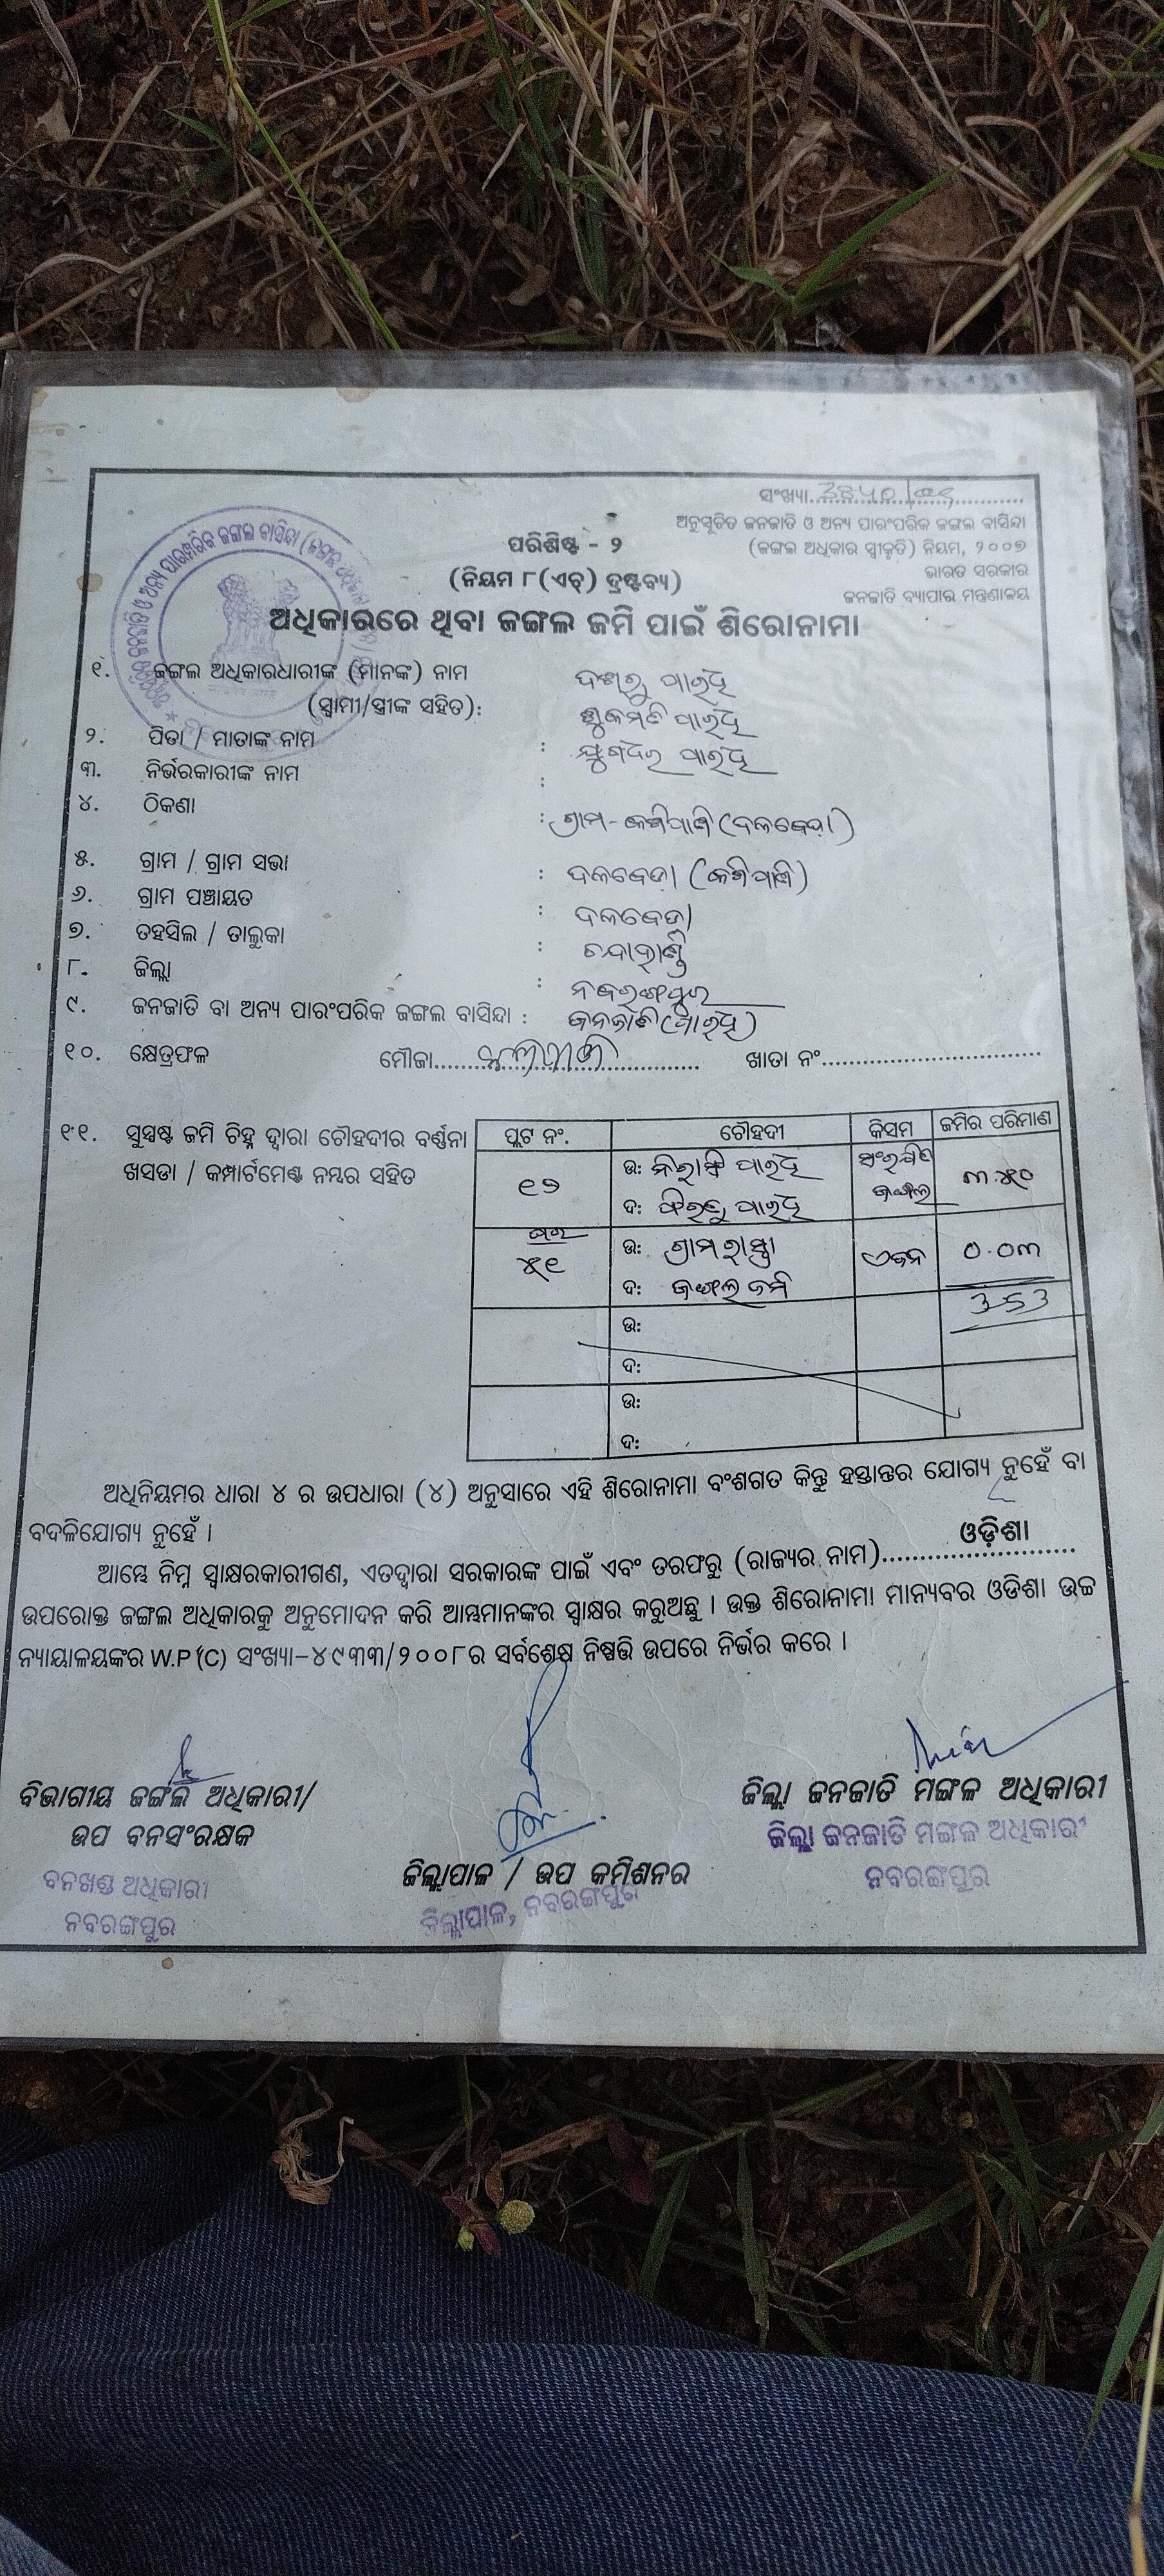 ସଂଖ୍ୟା
ଅନୁସୂଚିତ ଜନଜାତି ଓ ଅନ୍ୟ ପାରଂପରିକ ଜଙ୍ଗଲ ବାସିନ୍ଦା
(ଜଙ୍ଗଲ ଅଧିକାର ସ୍ୱୀକୃତି) ନିୟମ, ୨୦୦୭
ଭାରତ ସରକାର
ଜନଜାତି ବ୍ୟାପାର ମନ୍ତ୍ରଣାଳୟ
ପରିଶିଷ୍ଟ - ୨
(ନିୟମ ୮(ଏଚ୍) ଦ୍ରଷ୍ଟବ୍ୟ)
ଅଧିକାରରେ ଥିବା ଜଙ୍ଗଲ ଜମି ପାଇଁ ଶିରୋନାମା
୧. ଜଙ୍ଗଲ ଅଧିକାରଧାରୀଙ୍କ (ମାନଙ୍କ) ନାମ
(ସ୍ୱାମୀ/ସ୍ତ୍ରୀଙ୍କ ସହିତ):
୨. ପିତା / ମାତାଙ୍କ ନାମ :
୩. ନିର୍ଭରକାରୀଙ୍କ ନାମ :
୪. ଠିକଣା : ଗ୍ରାମ-
୫. ଗ୍ରାମ / ଗ୍ରାମ ସଭା : ଦଳବେଡ଼ା
୬. ଗ୍ରାମ ପଞ୍ଚାୟତ : ଦଳବେଡ଼ା
୭. ତହସିଲ / ତାଲୁକା : ଚନ୍ଦାହାଣ୍ଡି
୮. ଜିଲ୍ଲା : ନବରଙ୍ଗପୁର
୯. ଜନଜାତି ବା ଅନ୍ୟ ପାରଂପରିକ ଜଙ୍ଗଲ ବାସିନ୍ଦା : ଜନଜାତି
୧୦. କ୍ଷେତ୍ରଫଳ ମୌଜା ଖାତା ନଂ
୧୧. ସୁସ୍ପଷ୍ଟ ଜମି ଚିହ୍ନ ଦ୍ୱାରା ଚୌହଦୀର ବର୍ଣ୍ଣନା
ଖସଡା / କମ୍ପାର୍ଟମେଣ୍ଟ ନମ୍ବର ସହିତ
ପ୍ଲଟ ନଂ. ଚୌହଦୀ କିସମ ଜମିର ପରିମାଣ
ଉ: ସଂରକ୍ଷିତ
ଦ: ଜଙ୍ଗଲ ୩.୫୦
ଘର
୫୧ ଉ: ଗ୍ରାମ ରାସ୍ତା ୦.୦୩
ଦ: ଜଙ୍ଗଲ ଜମି
3-53
ଉ:
ଦ:
ଉ:
ଦ:
ଅଧିନିୟମର ଧାରା ୪ ର ଉପଧାରା (୪) ଅନୁସାରେ ଏହି ଶିରୋନାମା ବଂଶଗତ କିନ୍ତୁ ହସ୍ତାନ୍ତର ଯୋଗ୍ୟ ନୁହେଁ ବା
ବଦଳିଯୋଗ୍ୟ ନୁହେଁ ।
ଆମ୍ଭେ ନିମ୍ନ ସ୍ୱାକ୍ଷରକାରୀଗଣ, ଏତଦ୍ୱାରା ସରକାରଙ୍କ ପାଇଁ ଏବଂ ତରଫରୁ (ରାଜ୍ୟର ନାମ) ଓଡ଼ିଶା
ଉପରୋକ୍ତ ଜଙ୍ଗଲ ଅଧିକାରକୁ ଅନୁମୋଦନ କରି ଆମ୍ଭମାନଙ୍କର ସ୍ୱାକ୍ଷର କରୁଅଛୁ । ଉକ୍ତ ଶିରୋନାମା ମାନ୍ୟବର ଓଡିଶା ଉଚ୍ଚ
ନ୍ୟାୟାଳୟଙ୍କର W.P (C) ସଂଖ୍ୟା-୪୯୩୩/୨୦୦୮ର ସର୍ବଶେଷ ନିଷ୍ପତ୍ତି ଉପରେ ନିର୍ଭର କରେ ।
ବିଭାଗୀୟ ଜଙ୍ଗଲ ଅଧିକାରୀ/
ଉପ ବନସଂରକ୍ଷକ
ବନଖଣ୍ଡ ଅଧିକାରୀ
ନବରଙ୍ଗପୁର
ଜିଲ୍ଲାପାଳ / ଉପ କମିଶନର
ଜିଲ୍ଲାପାଳ, ନବରଙ୍ଗପୁର
ଜିଲ୍ଲା ଜନଜାତି ମଙ୍ଗଳ ଅଧିକାରୀ
ଜିଲ୍ଲା ଜନଜାତି ମଙ୍ଗଳ ଅଧିକାରୀ
ନବରଙ୍ଗପୁର